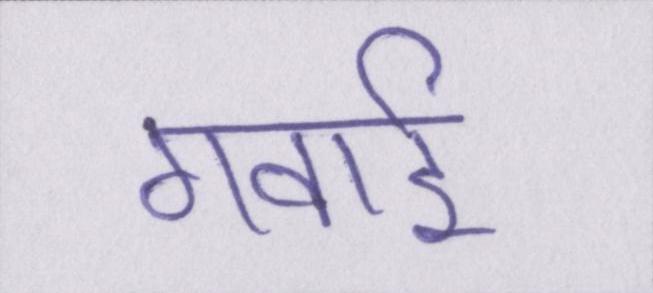 गवाई